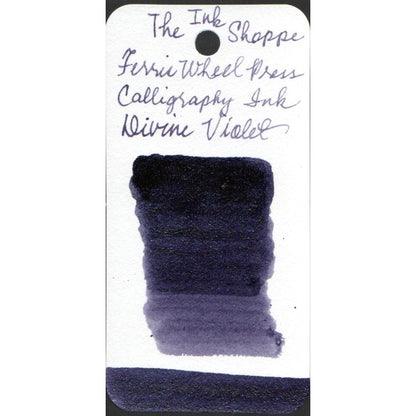 The Ink Shoppe
Ferris Wheel Press
Calligraphy Ink
Divine Violet